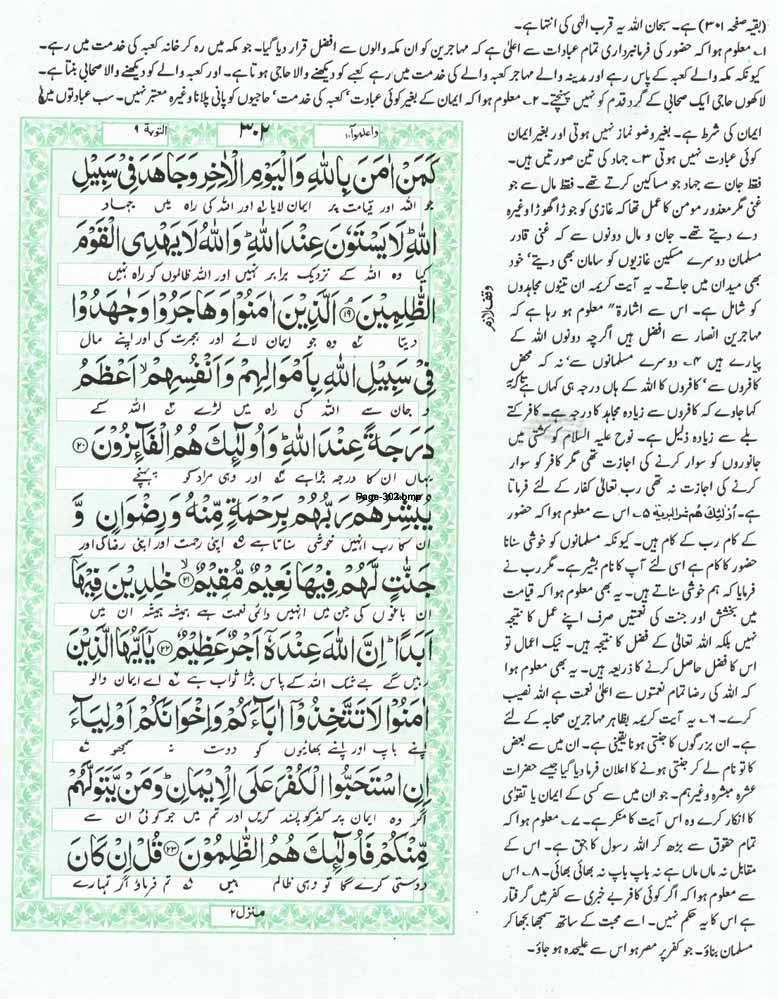 (بقیہ صفحہ ۳۰۱) ہے۔ سبحان اللہ یہ قرب الٰہی کی انتہا ہے۔
۱۔ معلوم ہوا کہ حضور کی فرمانبرداری تمام عبادات سے اعلیٰ ہے کہ مہاجرین کو ان مکہ والوں سے افضل قرار دیا گیا۔ جو مکہ میں رہ کر خانہ کعبہ کی خدمت میں رہے۔
کیونکہ مکہ والے کعبہ کے پاس رہے اور مدینہ والے مہاجر کعبہ والے کی خدمت میں رہے کعبے کو دیکھنے والا حاجی ہوتا ہے۔ اور کعبہ والے کو دیکھنے والا صحابی بنتا ہے۔
لاکھوں حاجی ایک صحابی کے گرد قدم کو نہیں پہنچتے۔ ۲۔ معلوم ہوا کہ ایمان کے بغیر کوئی عبادت ‘کعبہ کی خدمت‘ حاجیوں کو پانی پلانا وغیرہ معتبر نہیں۔ سب عبادتوں میں
ایمان کی شرط ہے۔ بغیر وضو نماز نہیں ہوتی اور بغیر ایمان
کوئی عبادت نہیں ہوتی ۳۔ جہاد کی تین صورتیں ہیں۔
فقط جان سے جہاد جو مساکین کرتے تھے۔ فقط مال سے جو
غنی مگر معذور مومن کا عمل تھا کہ غازی کو جوڑا گھوڑا وغیرہ
دے دیتے تھے۔ جان و مال دونوں سے کہ غنی قادر
مسلمان دوسرے مسکین غازیوں کو سامان بھی دیتے‘ خود
بھی میدان میں جاتے۔ یہ آیت کریمہ ان تینوں مجاہدوں
کو شامل ہے۔ اس سے اشارۃ" معلوم ہو رہا ہے کہ
مہاجرین انصار سے افضل ہیں اگرچہ دونوں اللہ کے
پیارے ہیں ۴۔ دوسرے مسلمانوں سے‘ نہ کہ محض
کافروں سے‘ کافروں کا اللہ کے ہاں درجہ ہی کہاں ہے تاکہ
کہا جاوے کہ کافروں سے زیادہ مجاہد کا درجہ ہے۔ کافر کتے
بلے سے زیادہ ذلیل ہے۔ نوح علیہ السلام کو کشتی میں
جانوروں کو سوار کرنے کی اجازت تھی مگر کافر کو سوار
کرنے کی اجازت نہ تھی رب تعالیٰ کفار کے لئے فرماتا
ہے۔ اُولٰٓئِکَ ھُمْ شَرُّ الْبَرِیَّۃِ ۵۔ اس سے معلوم ہوا کہ حضور
کے کام رب کے کام ہیں۔ کیونکہ مسلمانوں کو خوشی سنانا
حضور کا کام ہے اسی لئے آپ کا نام بشیر ہے۔ مگر رب نے
فرمایا کہ ہم خوشی سناتے ہیں۔ یہ بھی معلوم ہوا کہ قیامت
میں بخشش اور جنت کی نعمتیں صرف اپنے عمل کا نتیجہ
نہیں بلکہ اللہ تعالیٰ کے فضل کا نتیجہ ہیں۔ نیک اعمال تو
اس کا فضل حاصل کرنے کا ذریعہ ہیں۔ یہ بھی معلوم ہوا
کہ اللہ کی رضا تمام نعمتوں سے اعلیٰ نعمت ہے اللہ نصیب
کرے۔ ۶۔ یہ آیت کریمہ بظاہر مہاجرین صحابہ کے لئے
ہے۔ ان بزرگوں کا جنتی ہونا یقینی ہے۔ ان میں سے بعض
کا تو نام لے کر جنتی ہونے کا اعلان فرما دیا گیا جیسے حضرات
عشرہ مبشرہ وغیرہم۔ جو ان میں سے کسی کے ایمان یا تقوٰی
کا انکار کرے وہ اس آیت کا منکر ہے۔ ۷۔ معلوم ہوا کہ
تمام حقوق سے بڑھ کر اللہ رسول کا حق ہے۔ اس کے
مقابل نہ ماں ماں ہے نہ باپ باپ نہ بھائی بھائی۔ ۸۔ اس
سے معلوم ہوا کہ اگر کوئی کافر بے خبری سے کفر میں گرفتار
ہے اس کا یہ حکم نہیں۔ اسے محبت کے ساتھ سمجھا بجھا کر
مسلمان بناؤ۔ جو کفر پر مصر ہو اس سے علیحدہ ہو جاؤ۔
واعلموا ۱۰ ۳۰۲ التوبۃ ۹
كَمَنْ اٰمَنَ بِاللّٰهِ وَالْيَوْمِ الْاٰخِرِ وَجَاهَدَ فِيْ سَبِيْلِ
جو اللہ اور قیامت پر ایمان لایا اور اللہ کی راہ میں جہاد
اللّٰهِ ؕ لَا يَسْتَوٗنَ عِنْدَ اللّٰهِ ؕ وَاللّٰهُ لَا يَهْدِي الْقَوْمَ
کیا وہ اللہ کے نزدیک برابر نہیں اور اللہ ظالموں کو راہ نہیں
الظّٰلِمِيْنَ ۱۹ اَلَّذِيْنَ اٰمَنُوْا وَهَاجَرُوْا وَجٰهَدُوْا
دیتا وہ جو ایمان لائے اور ہجرت کی اور اپنے مال
وقف لازم
فِيْ سَبِيْلِ اللّٰهِ بِاَمْوَالِهِمْ وَاَنْفُسِهِمْ ۙ اَعْظَمُ
و جان سے اللہ کی راہ میں لڑے اللہ کے
دَرَجَةً عِنْدَ اللّٰهِ ؕ وَاُولٰٓئِكَ هُمُ الْفَآئِزُوْنَ ۲۰
یہاں ان کا درجہ بڑا ہے اور وہی مراد کو پہنچے
Page-302.bmp
يُبَشِّرُهُمْ رَبُّهُمْ بِرَحْمَةٍ مِّنْهُ وَرِضْوَانٍ وَّ
ان کا رب انہیں خوشی سناتا ہے اپنی رحمت اور اپنی رضا کی اور
جَنّٰتٍ لَّهُمْ فِيْهَا نَعِيْمٌ مُّقِيْمٌ ۲۱ خٰلِدِيْنَ فِيْهَاۤ
ان باغوں کی جن میں انہیں دائمی نعمت ہے ہمیشہ ہمیشہ ان میں
اَبَدًا ؕ اِنَّ اللّٰهَ عِنْدَهٗۤ اَجْرٌ عَظِيْمٌ ۲۲ يٰۤاَيُّهَا الَّذِيْنَ
رہیں گے بے شک اللہ کے پاس بڑا ثواب ہے اے ایمان والو
اٰمَنُوْا لَا تَتَّخِذُوْۤا اٰبَآءَكُمْ وَاِخْوَانَكُمْ اَوْلِيَآءَ
اپنے باپ اور اپنے بھائیوں کو دوست نہ سمجھو
اِنِ اسْتَحَبُّوا الْكُفْرَ عَلَى الْاِيْمَانِ ؕ وَمَنْ يَّتَوَلَّهُمْ
اگر وہ ایمان پر کفر کو پسند کریں اور تم میں جو کوئی ان سے
مِّنْكُمْ فَاُولٰٓئِكَ هُمُ الظّٰلِمُوْنَ ۲۳ قُلْ اِنْ كَانَ
دوستی کرے گا تو وہی ظالم ہیں تم فرماؤ اگر تمہارے
منزل ۲